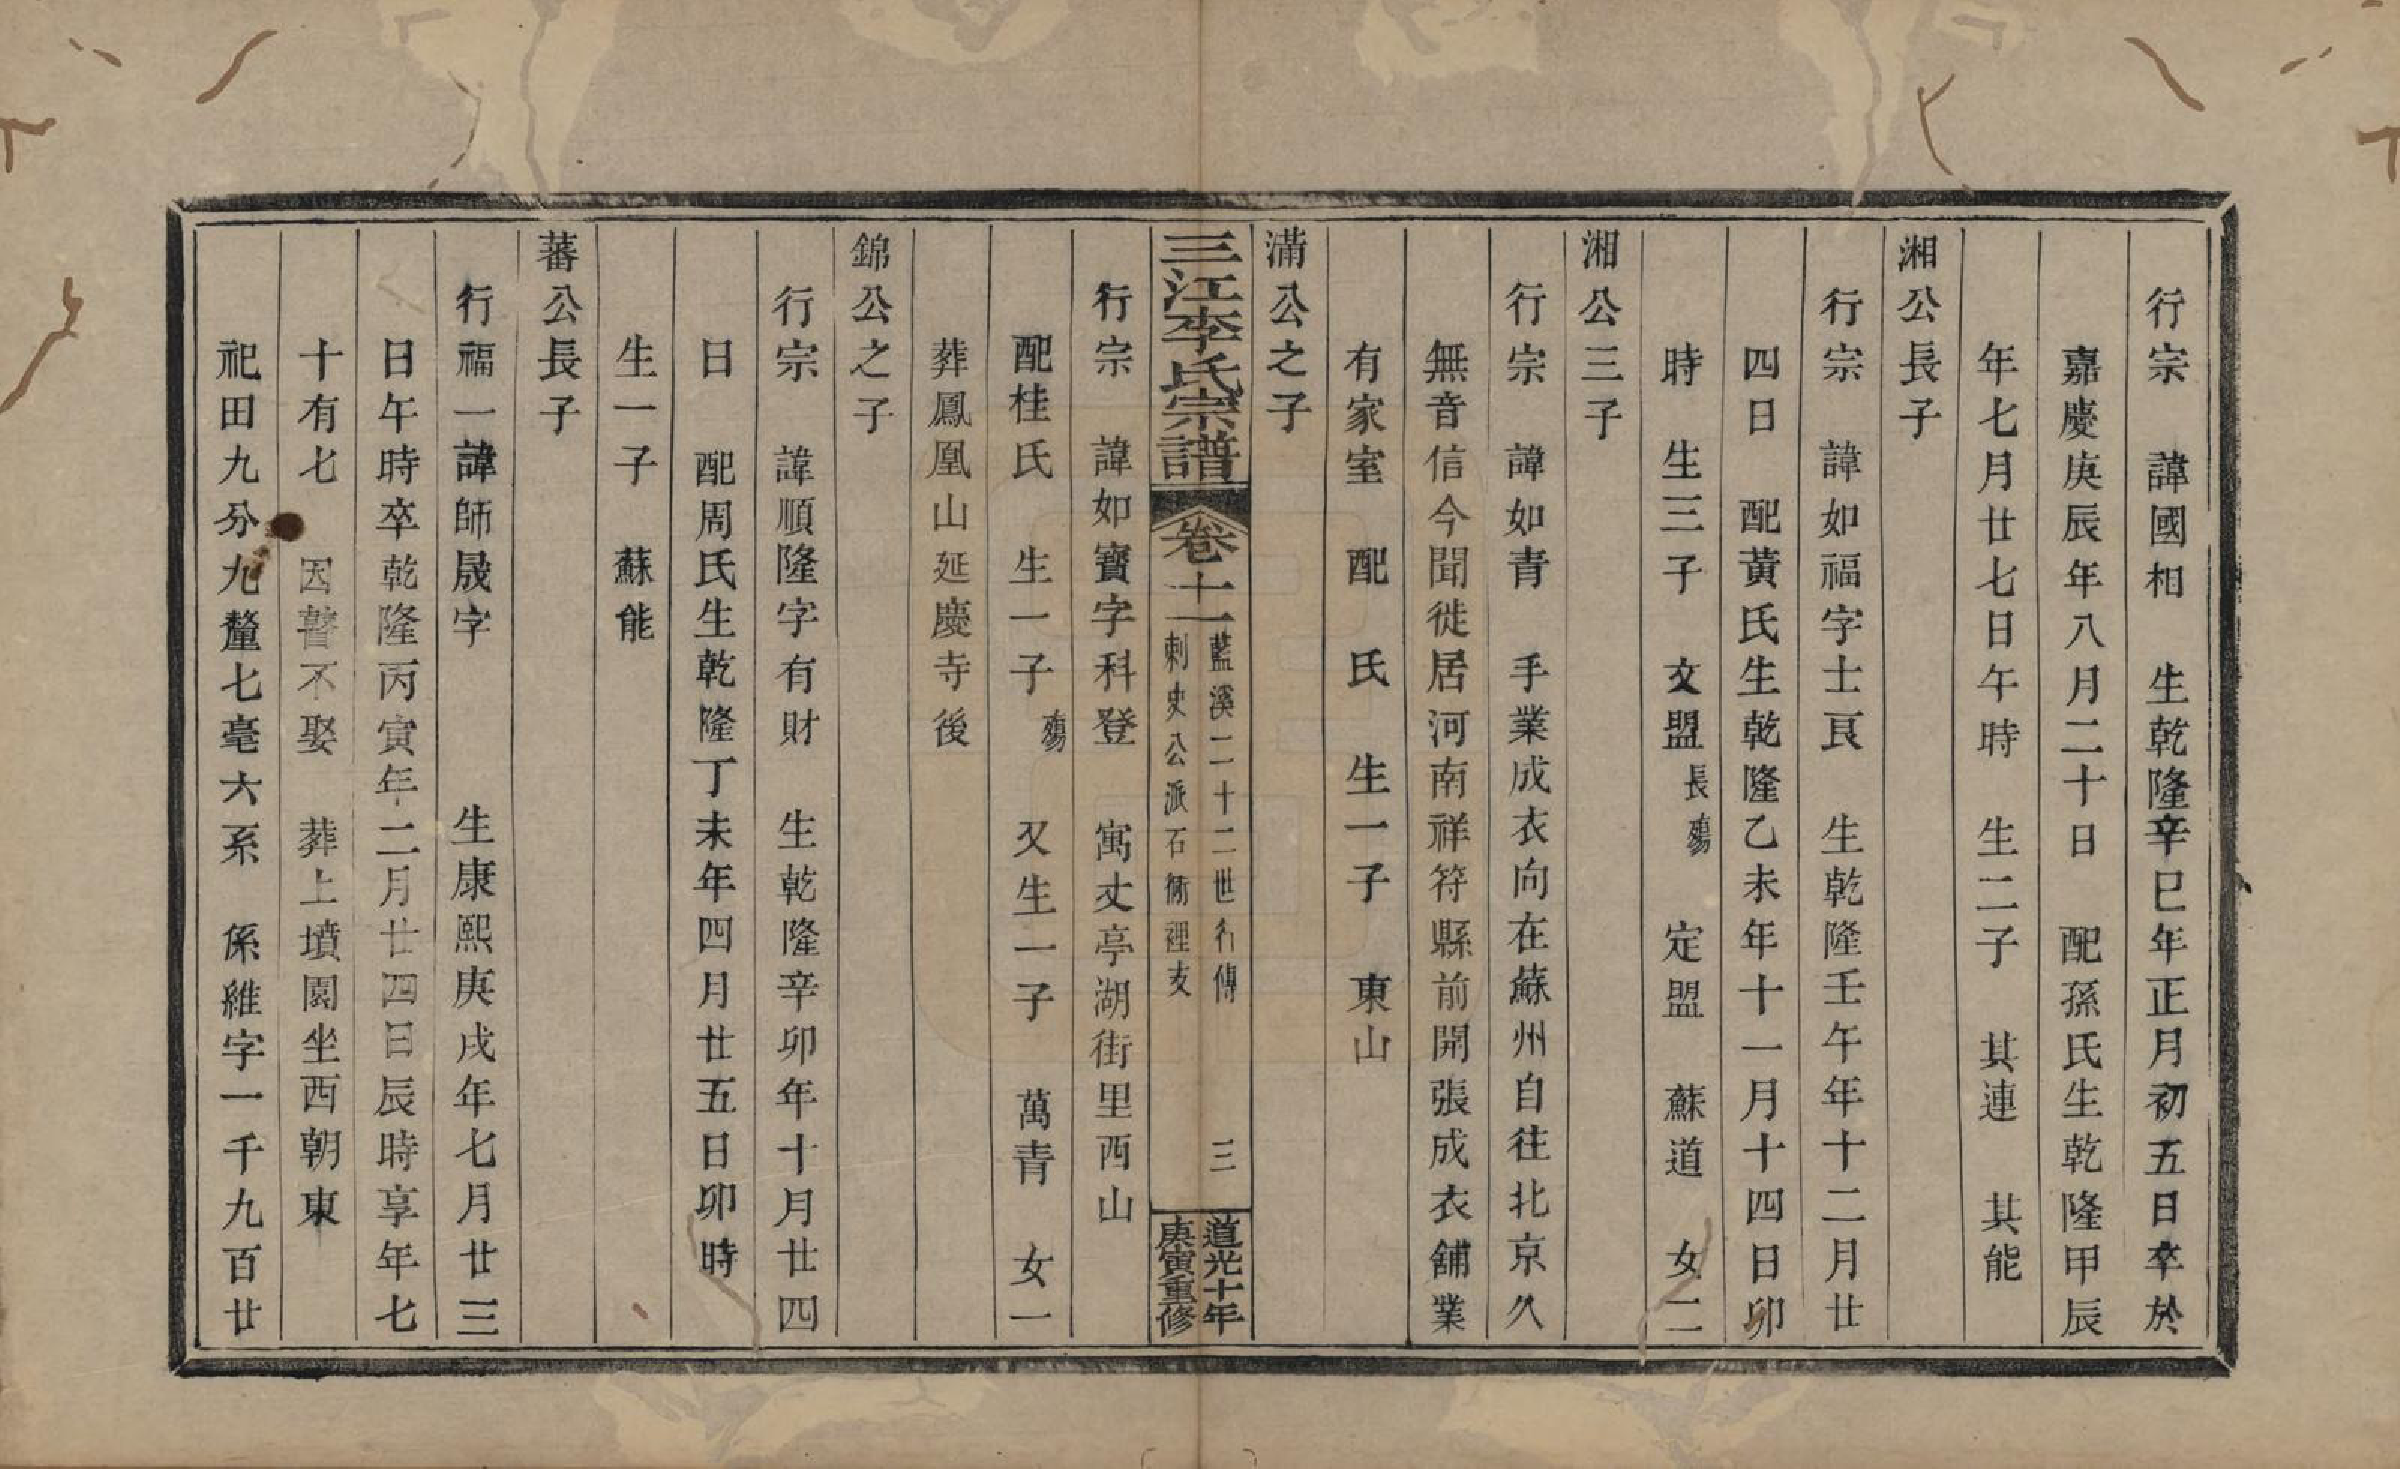 行宗　諱國相　生乾隆辛巳年正月初五日卒於
嘉慶庚辰年八月二十日　配孫氏生乾隆甲辰
年七月廿七日午時　生二子　其連　其能
湘公長子
行宗　諱如福字士良　生乾隆壬午年十二月廿
四日　配黃氏生乾隆乙未年十一月十四日卯
時　生三子　文盟長殤　定盟　蘇道　女二
湘公三子
行宗　諱如青　手業成衣向在蘇州自往北京久
無音信今聞徙居河南祥符縣前開張成衣舖業
有家室　配　氏　生一子　東山
滿公之子
三江李氏宗譜　卷十一　藍溪二十二世行傳　三　道光十年
刺史公派石衕裡支　庚寅重修
行宗　諱如寶字科登　寓丈亭湖街里西山
配桂氏　生一子殤　又生一子　萬青　女一
葬鳳凰山延慶寺後
錦公之子
行宗　諱順隆字有財　生乾隆辛卯年十月廿四
日　配周氏生乾隆丁未年四月廿五日卯時
生一子　蘇能
蕃公長子
行福一諱師晟字　　生康熙庚戌年七月廿三
日午時卒乾隆丙寅年二月廿四日辰時享年七
十有七　因瞽不娶　葬上墳園坐西朝東
祀田九分九釐七毫六系　係維字一千九百廿